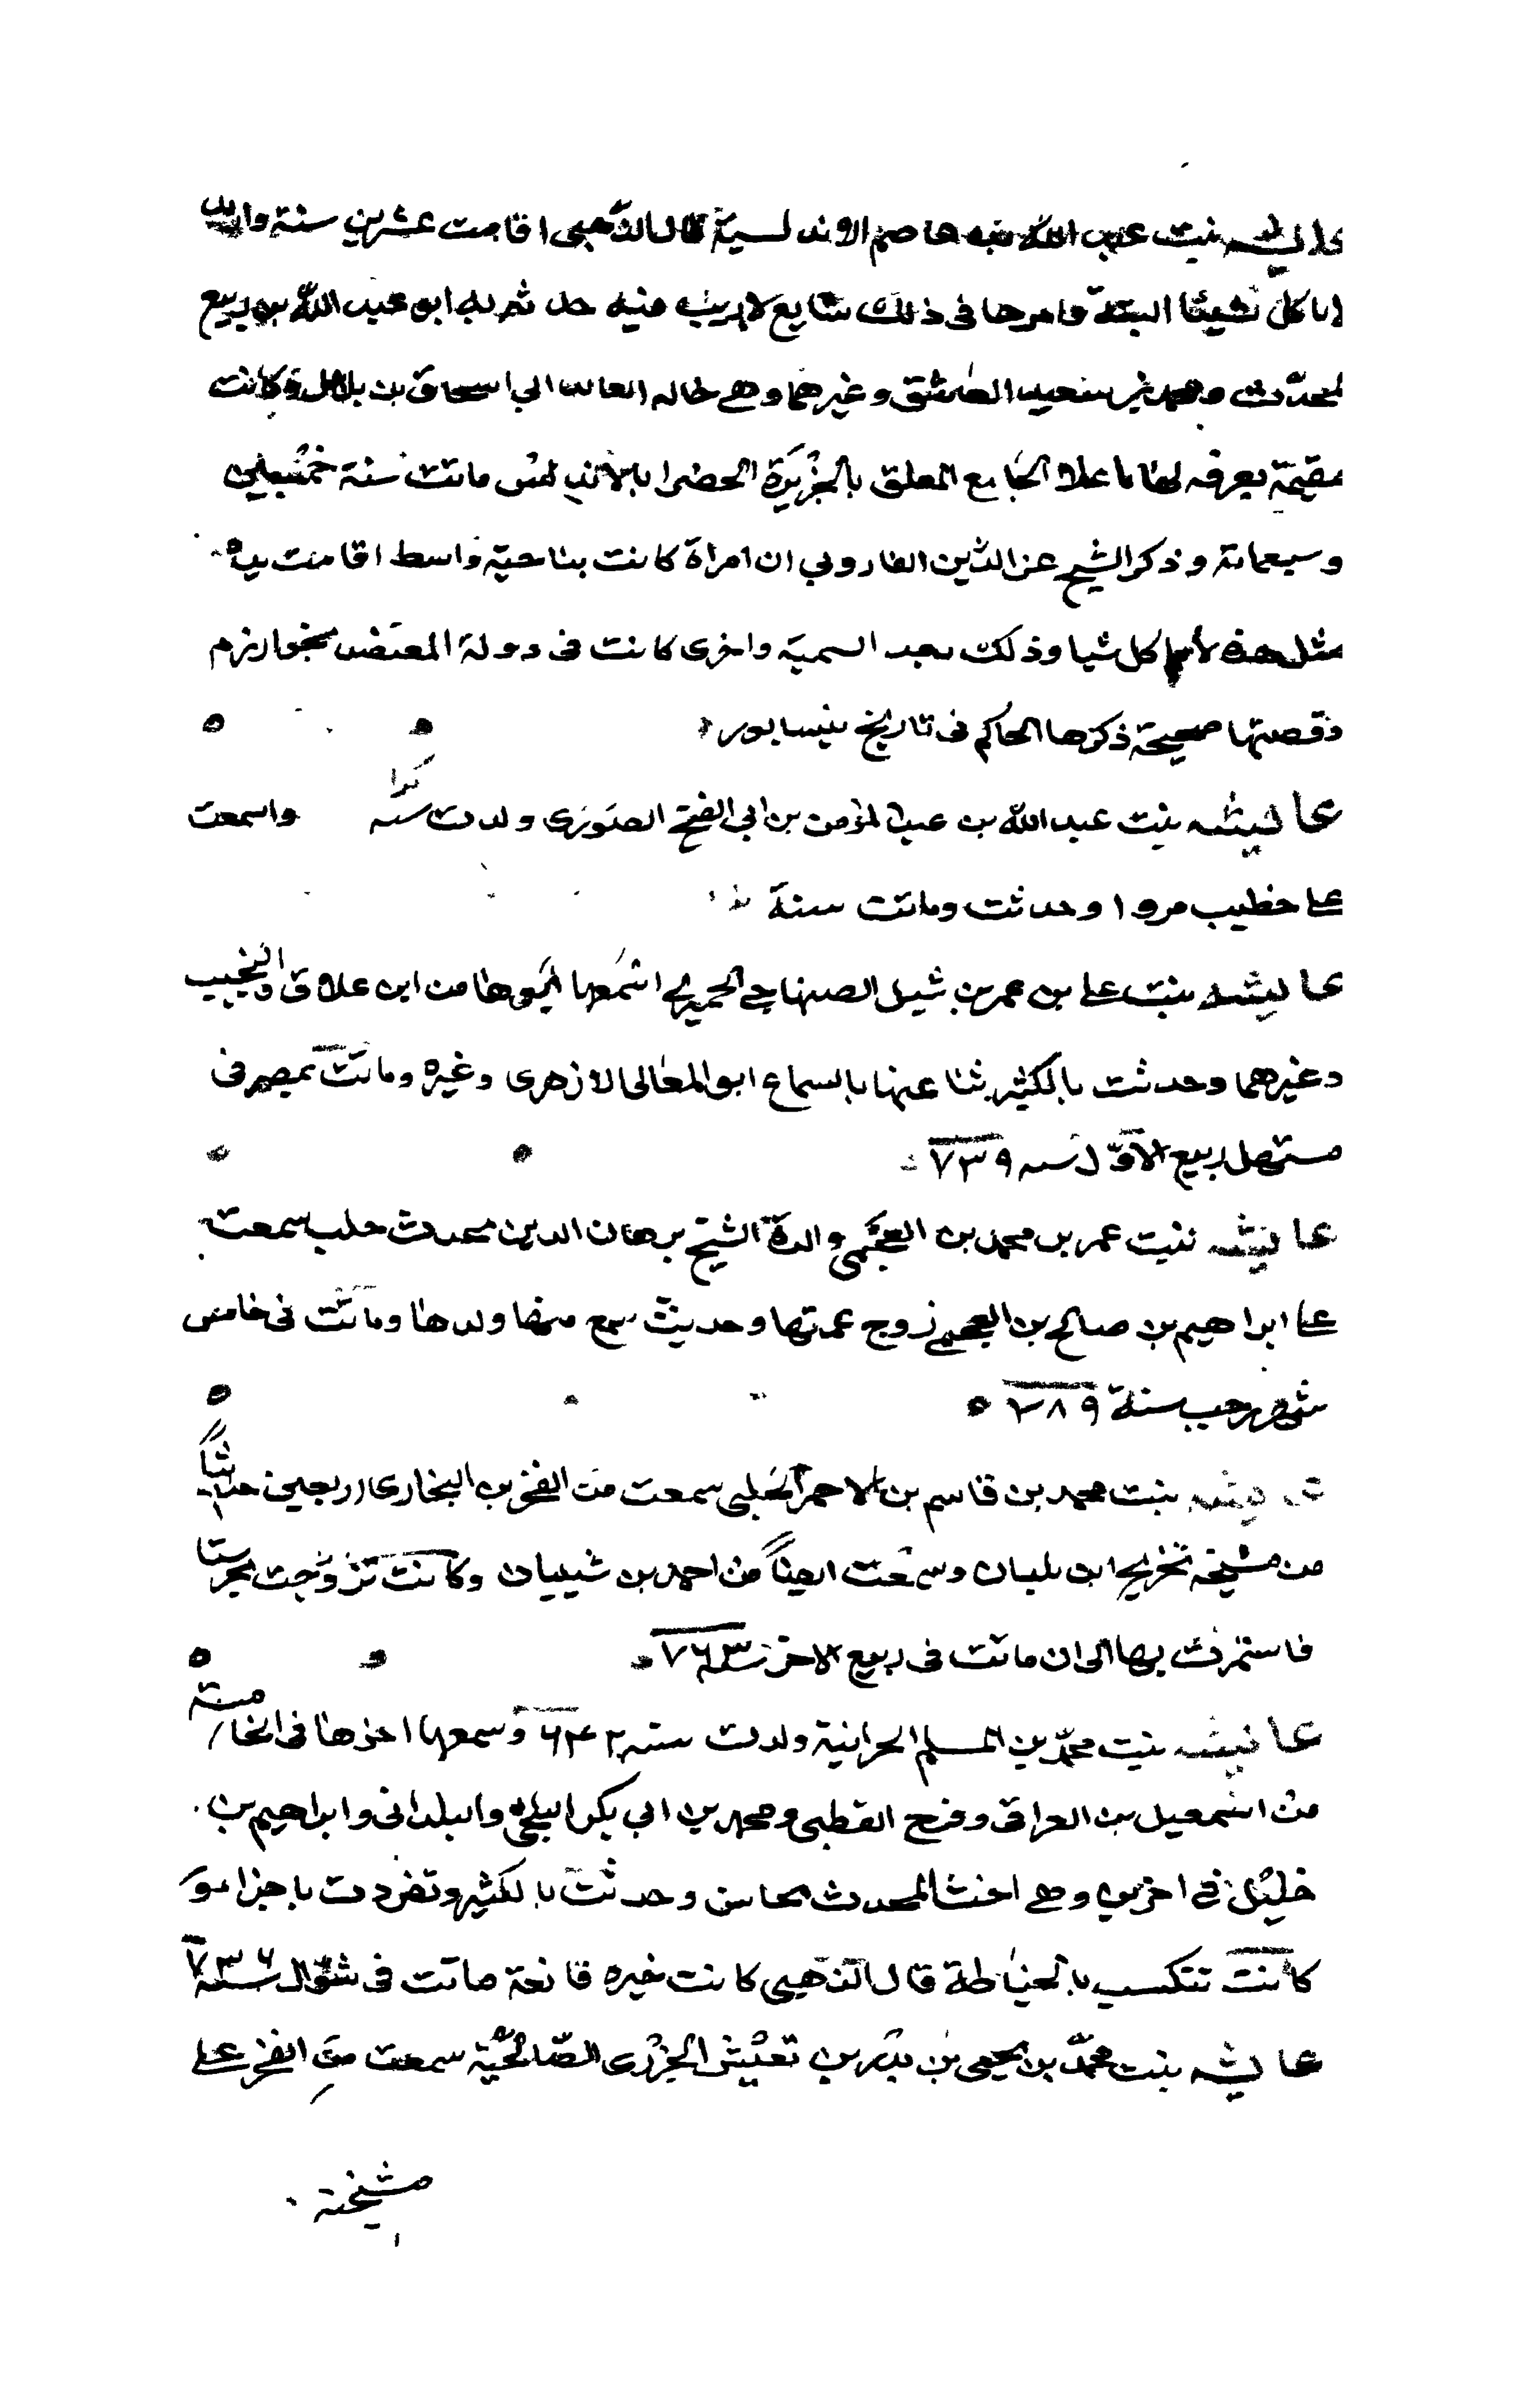 عائشه بنت عبد الله بنت عاصم الاندلسية قال الذهبي اقامت عشرين سنة وازيد
لا تاكل شيئا البتة وامرها في ذلك شايع لا ريب فيه حدثني به ابو عبد الله بن ربيع
المحدث ومحمد بن سعيد العاشق وغيرهما وهي خاله ابي اسحاق بن بلال وكانت
مقيمة بغرفه لها باعلا الجامع المعلق بالجزيرة الخضرا بالاندلس ماتت سنة خمس
وسبعمائة وذكر الشيخ عز الدين الفاروثي ان امراة كانت بناحية واسط اقامت مدة
مثل هذه لا تاكل شيا وذلك بعد الستمية واخرى كانت في دولة المعتضد بخوارزم
وقصتها صحيحة ذكرها الحاكم في تاريخ نيسابور
عائشه بنت عبد الله بن عبد المؤمن بن ابي الفتح الصنوري ولدت سنه كذا واسمعت
على خطيب مردا وحدثت وماتت سنة
عائشه بنت علي بن عمر بن شبل الصنهاجي الحميري اسمعها ابوها من ابن علاق والنجيب
وغيرهما وحدثت بالكثير ثنا عنها بالسماع ابو المعالي الازهري وغيره وماتت بمصر في
مستهل ربيع الاول سنه ٧٣٩
عائشه بنت عمر بن محمد بن العجمي والدة الشيخ برهان الدين محدث حلب سمعت
على ابراهيم بن صالح بن العجمي زوج عمتها وحديث سمع منها ولدها وماتت في خامس
شهر رجب سنة ٧٨٩
عائشه بنت محمد بن قاسم بن الاحمر الحلبي سمعت من الفخر بن البخاري اربعين حديثاً
من مشيخة تخريج ابن بلبان وسمعت ايضاً من احمد بن شيبان وكانت تزوجت بحرستا
فاستمرت بها الى ان ماتت في ربيع الاخر سنه ٧٦٣
عائشه بنت محمد بن المسلم الحرانية ولدت سنه ٦٤٢ وسمعها اخوها في الخامسة
من اسمعيل بن العراقي وفرج القطبي ومحمد بن ابي بكر البلخي والبلداني وابراهيم بن
خليل في اخرين وهي اخت المحدث محاسن وحدثت بالكثير وتفردت باجزا
كانت تتكسب بالخياطة قال الذهبي كانت خيره قانعة ماتت في شوال سنه ٧٣٦
عائشه بنت محمد بن يحيى بن بدر بن تعيش الجزري الصالحية سمعت من الفخر على
مشيخته